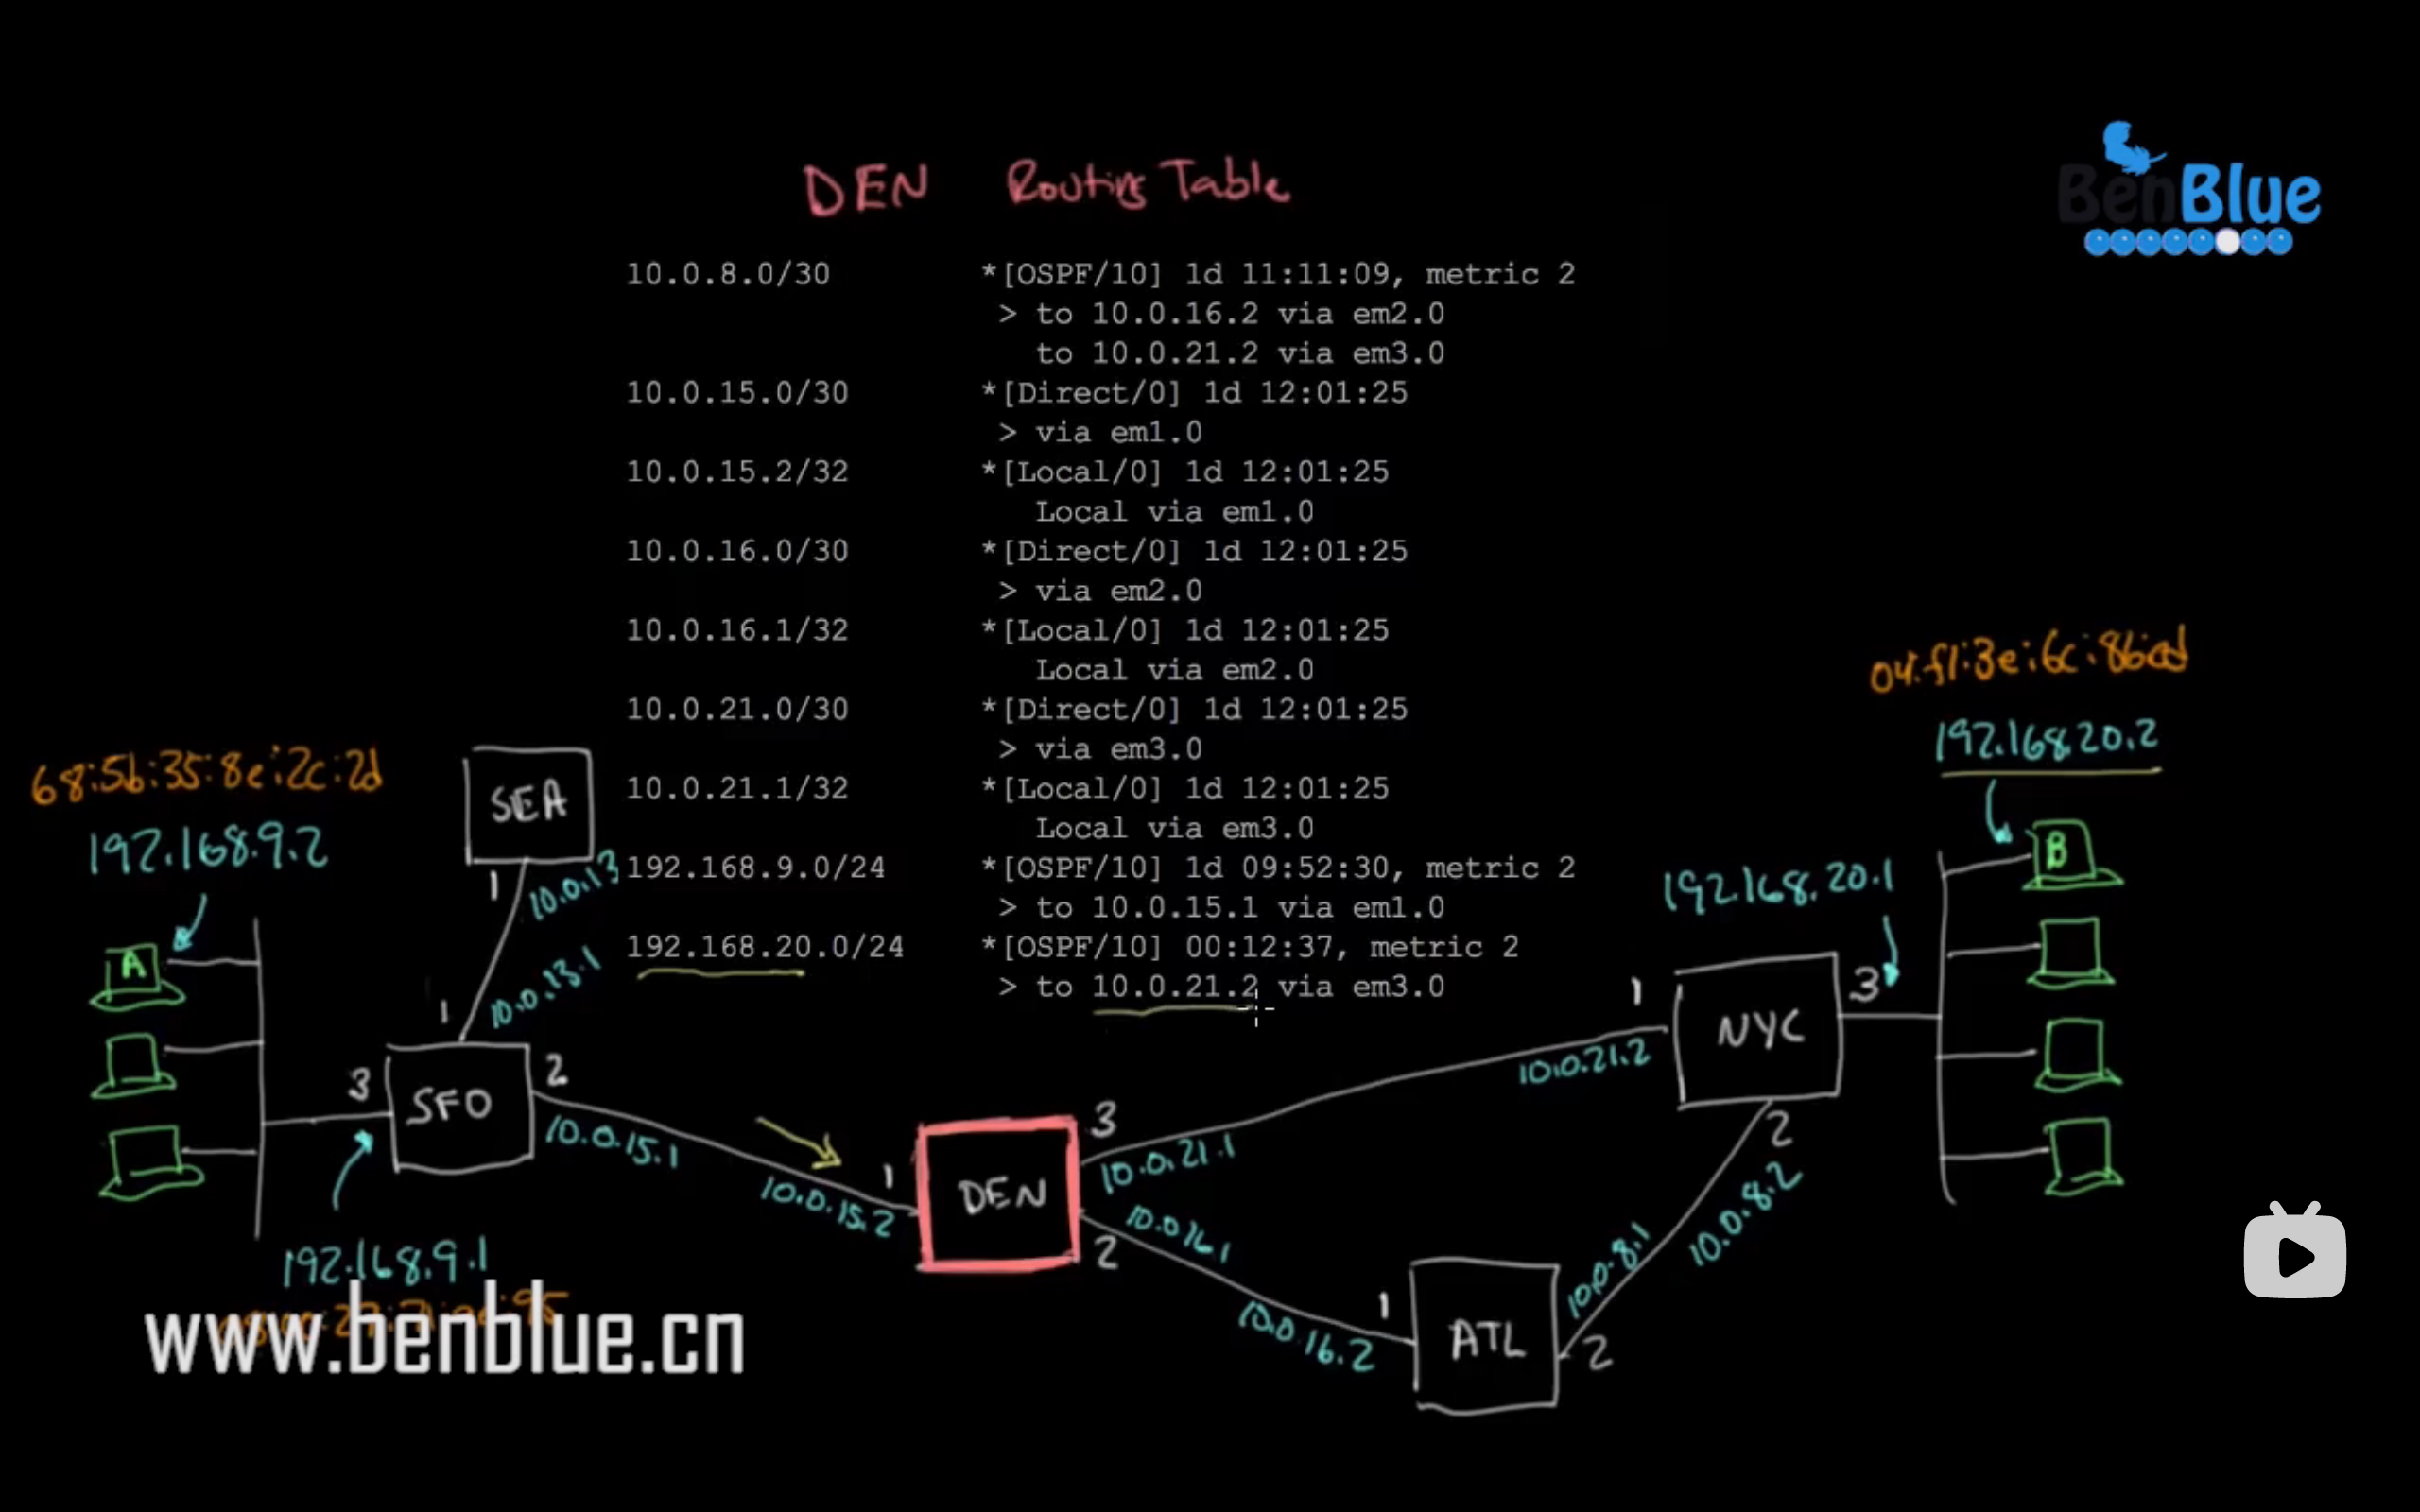 DEN Routing Table
BenBlue
10.0.8.0/30 *[OSPF/10] 1d 11:11:09, metric 2
> to 10.0.16.2 via em2.0
to 10.0.21.2 via em3.0
10.0.15.0/30 *[Direct/0] 1d 12:01:25
> via em1.0
10.0.15.2/32 *[Local/0] 1d 12:01:25
Local via em1.0
10.0.16.0/30 *[Direct/0] 1d 12:01:25
> via em2.0
10.0.16.1/32 *[Local/0] 1d 12:01:25
Local via em2.0
10.0.21.0/30 *[Direct/0] 1d 12:01:25
> via em3.0
10.0.21.1/32 *[Local/0] 1d 12:01:25
Local via em3.0
192.168.9.0/24 *[OSPF/10] 1d 09:52:30, metric 2
> to 10.0.15.1 via em1.0
192.168.20.0/24 *[OSPF/10] 00:12:37, metric 2
> to 10.0.21.2 via em3.0
04:f1:3e:6c:86:cd
192.168.20.2
68:5b:35:8e:2c:2d
192.168.9.2
SEA
1
10.0.13
10.0.13.1
1
A
B
192.168.20.1
3
SFO
2
10.0.15.1
10.0.15.2
1
DEN
3
10.0.21.1
10.0.21.2
1
NYC
3
2
10.0.8.2
10.0.8.1
2
10.0.16.1
10.0.16.2
1
ATL
2
192.168.9.1
www.benblue.cn